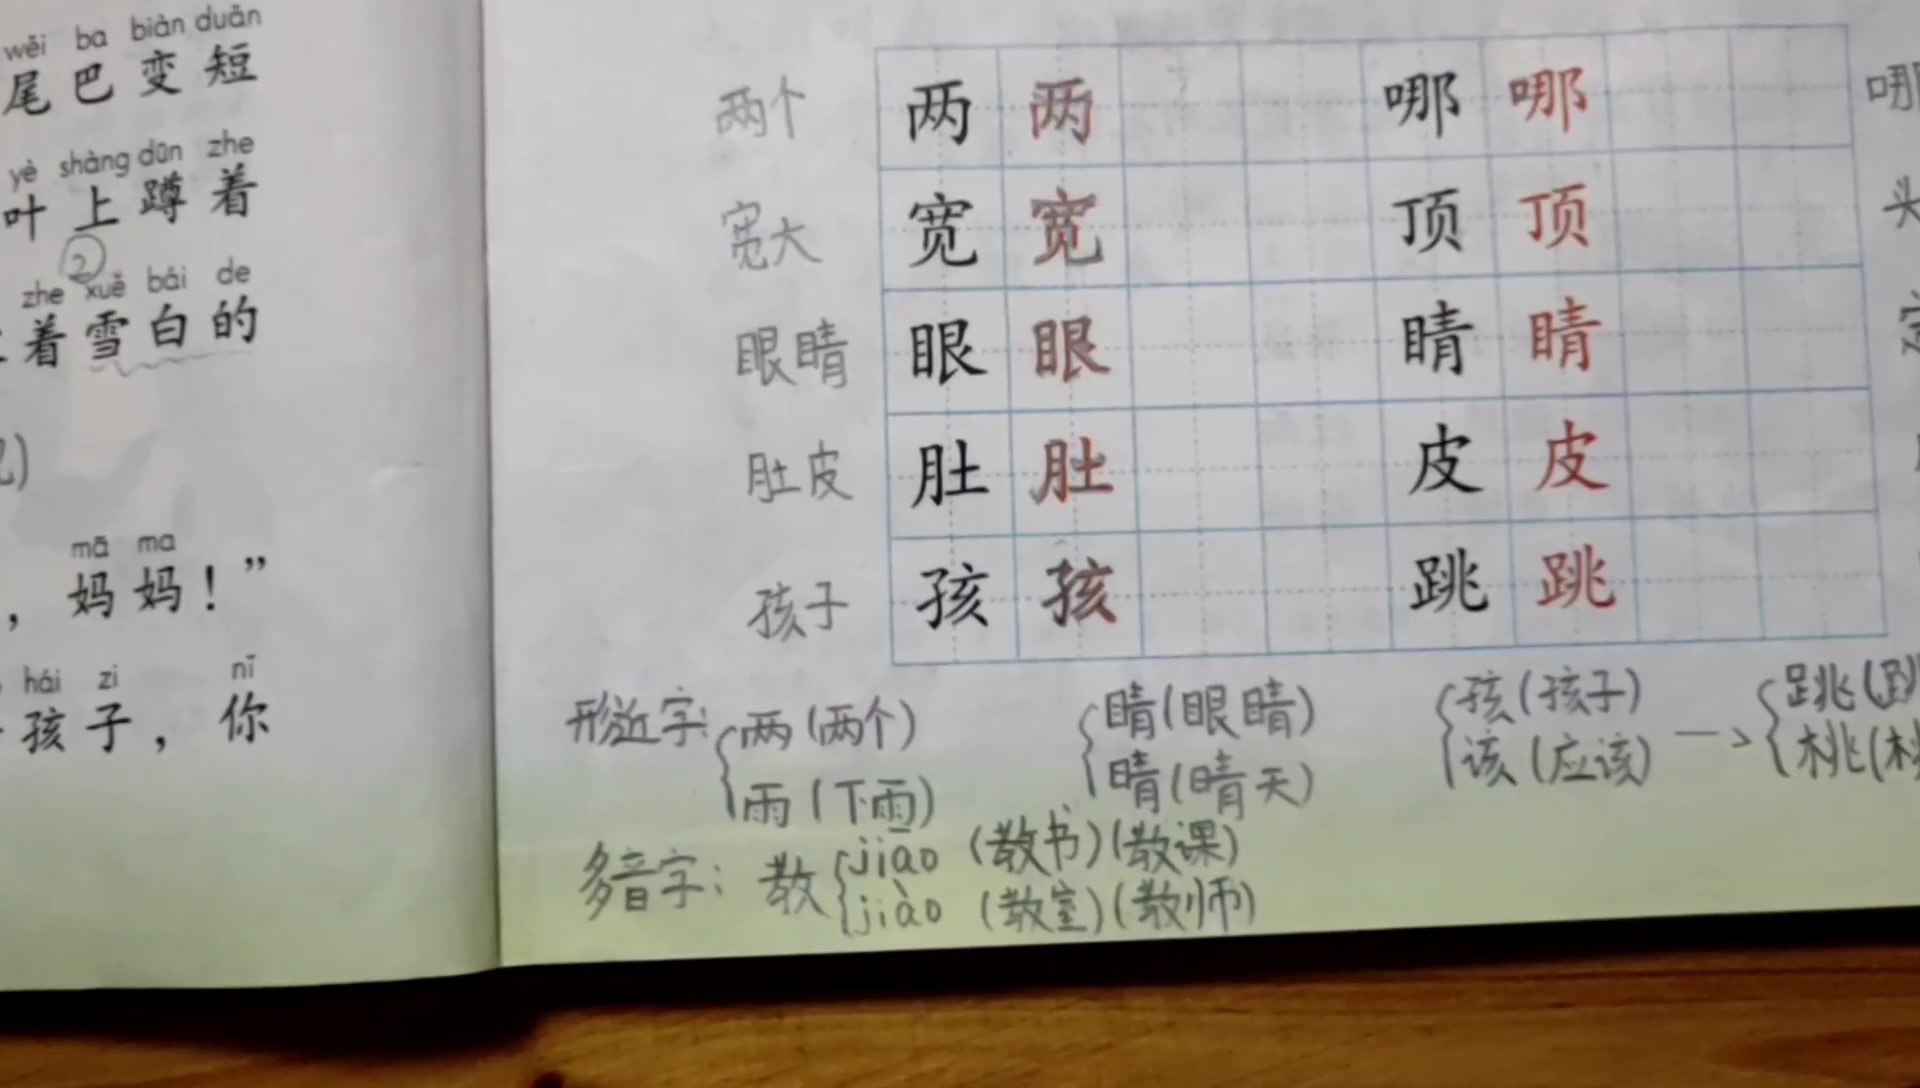 wěi ba biàn duǎn
尾巴变短
yè shàng dūn zhe
叶上蹲着
②
zhe xuě bái de
着雪白的
mā ma
，妈妈！”
hái zi nǐ
孩子，你
两个 两 两 哪 哪 哪
宽大 宽 宽 顶 顶 头
眼睛 眼 眼 睛 睛
肚皮 肚 肚 皮 皮
孩子 孩 孩 跳 跳
形近字： 两（两个） 睛（眼睛） 孩（孩子） 跳（
雨（下雨） 晴（晴天） 该（应该） 桃（
多音字：教 jiāo （教书）（教课）
jiào （教室）（教师）